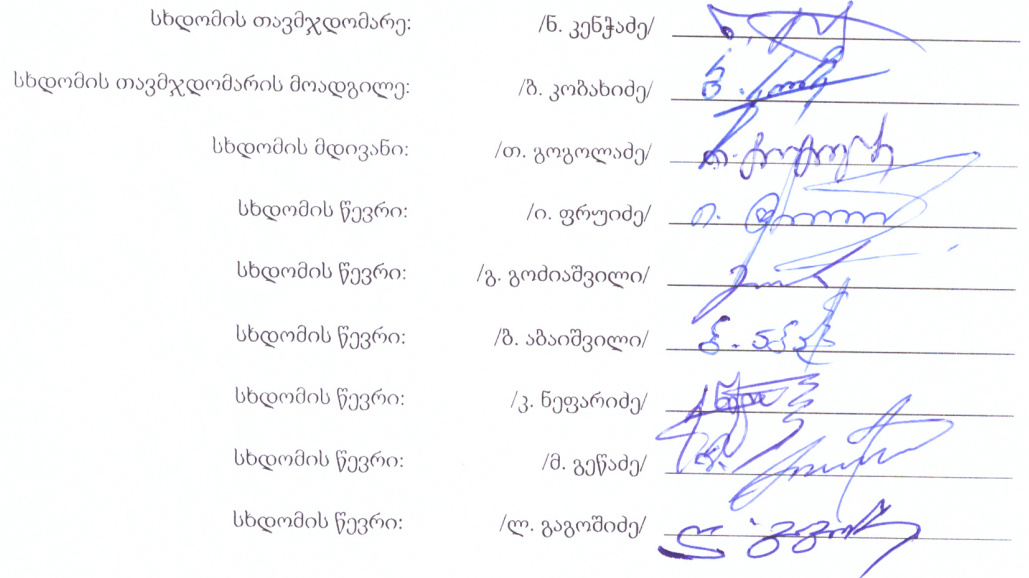 სხდომის თავმჯდომარე: /ნ. კენჭაძე/
სხდომის თავმჯდომარის მოადგილე: /ბ. კობახიძე/
სხდომის მდივანი: /თ. გოგოლაძე/
სხდომის წევრი: /ი. ფრუიძე/
სხდომის წევრი: /გ. გოძიაშვილი/
სხდომის წევრი: /ბ. აბაიშვილი/
სხდომის წევრი: /კ. ნეფარიძე/
სხდომის წევრი: /მ. გეწაძე/
სხდომის წევრი: /ლ. გაგოშიძე/